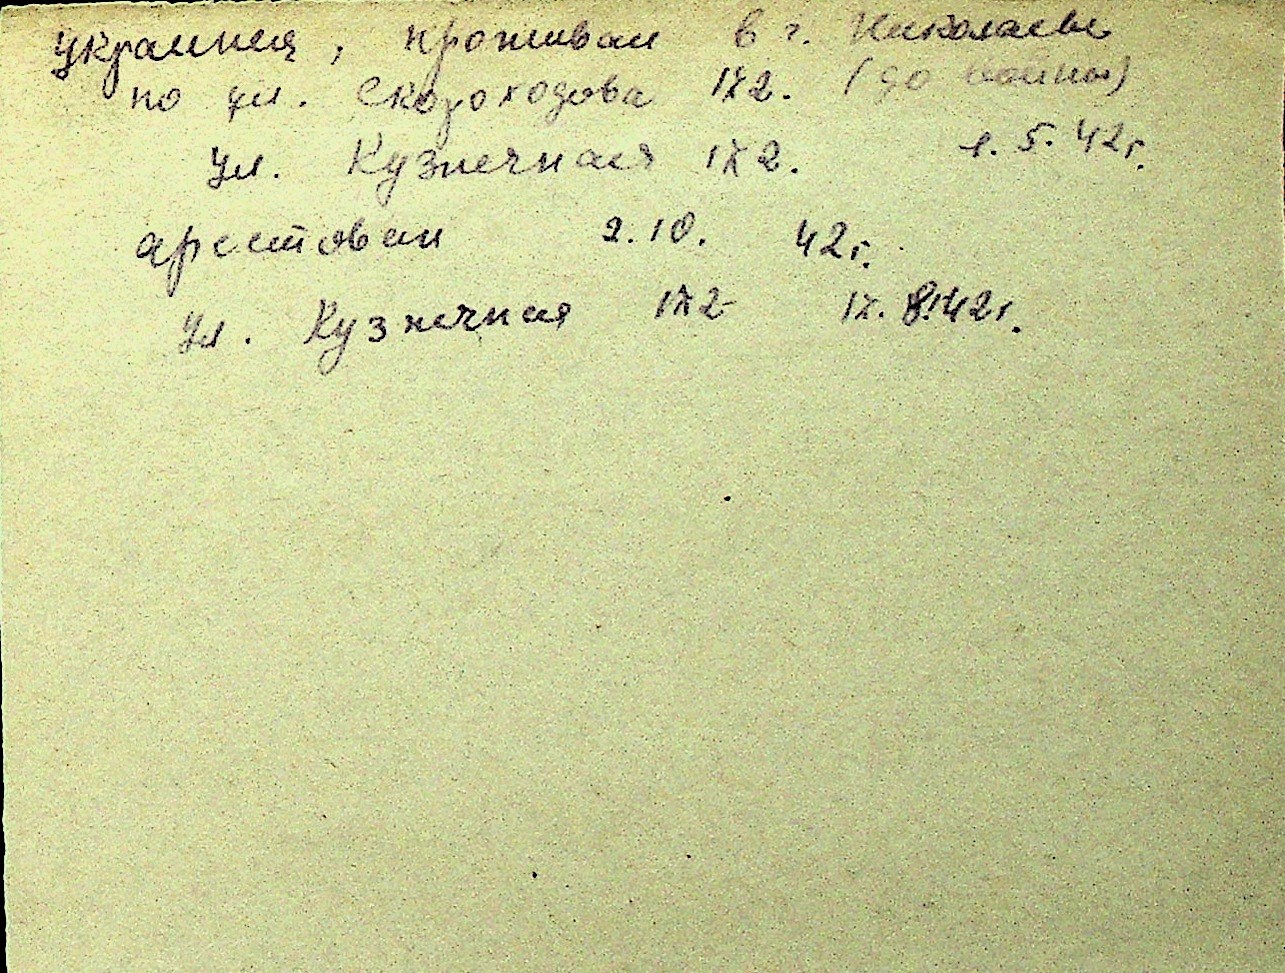 украинец, проживал в г. Николаеве
по ул. Скороходова 172. (до войны)
ул. Кузнечная 172. 1.5.42г.
арестован 2.10. 42г.
ул. Кузнечная 172 42г.